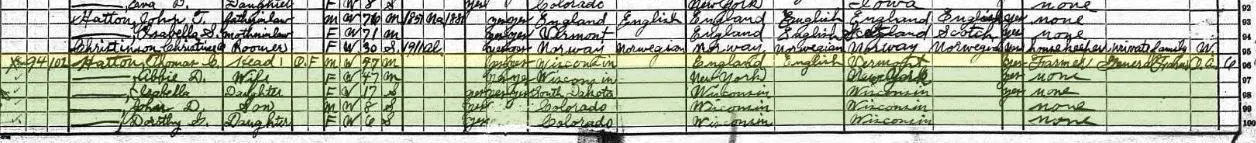 Daughter F W 8 S yes Colorado New York Iowa none 92
Hatton John T. fatherinlaw M W 76 M 1851 Na 1881 England English England English England English yes none 93
Isabella S. motherinlaw F W 71 M Vermont England English Scotland Scotch yes none 94
Christinson Christina Roomer F W 30 S 1911 al Norway Norwegian Norway Norwegian Norway Norwegian yes housekeeper private family W 95
94 102 Hatton Thomas C. Head 1 O F M W 47 M Wisconsin England English Vermont yes Farmer General farm O.A. 96
Libbie D. Wife F W 47 M Wisconsin New York New York yes none 97
Isabella Daughter F W 17 S yes South Dakota Wisconsin Wisconsin yes none 98
John D. Son M W 8 S yes Colorado Wisconsin Wisconsin none 99
Dorothy G. Daughter F W 6 S yes Colorado Wisconsin Wisconsin none 100